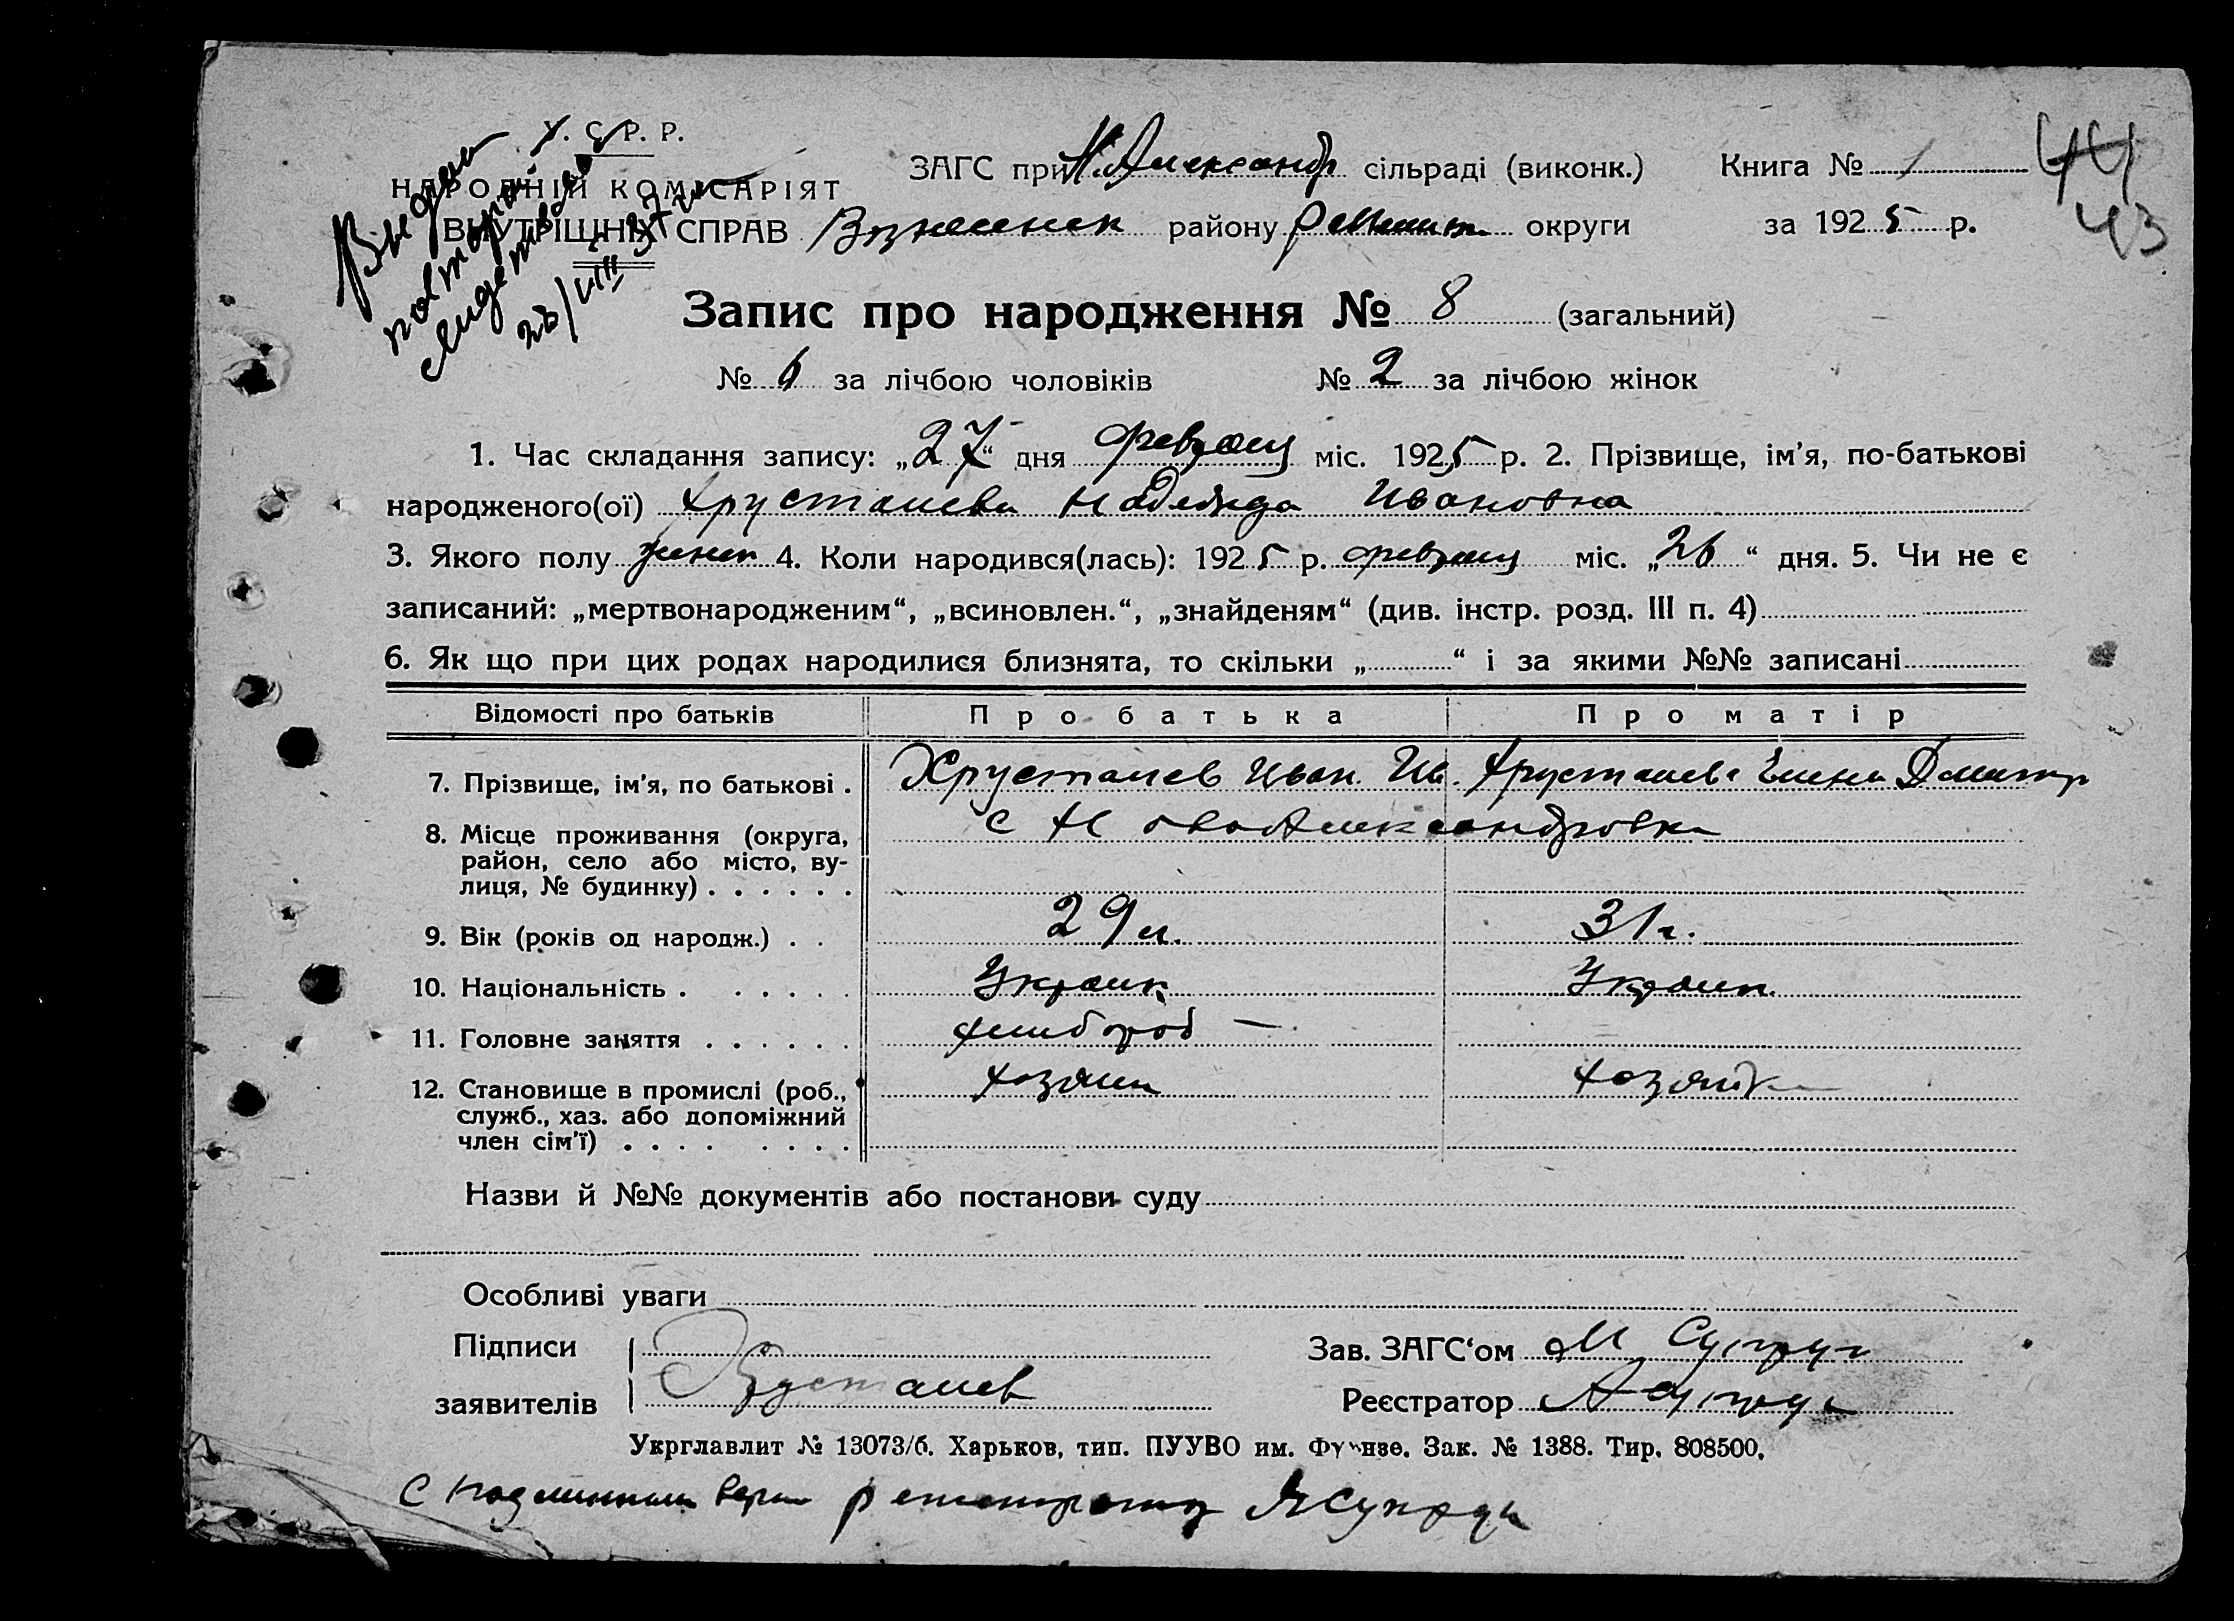 У. С. Р. Р.
НАРОДНІЙ КОМІСАРІЯТ
ВНУТРІШНІХ СПРАВ
Выдано
повторн.
свидетельство
26/VIII 37 г.
ЗАГС при Н. Александр сільраді (виконк.)
Вознесенск району округи
Книга № 1
за 1925 р.
44
43
Запис про народження № 8 (загальний)
№ 6 за лічбою чоловіків № 2 за лічбою жінок
1. Час складання запису: „27“ дня февраля міс. 1925 р. 2. Прізвище, ім’я, по-батькові
народженого(ої) Хрусталева Надежда Ивановна
3. Якого полу женск 4. Коли народився(лась): 1925 р. февраля міс. „26“ дня. 5. Чи не є
записаний: „мертвонародженим“, „всиновлен.“, „знайденям“ (див. інстр. розд. III п. 4)
6. Як що при цих родах народилися близнята, то скільки „ “ і за якими №№ записані
Відомості про батьків Про батька Про матір
7. Прізвище, ім’я, по батькові . Хрусталев Иван Ив. Хрусталева Елена Дмитр
8. Місце проживання (округа, с Ново Александровка
район, село або місто, ву-
лиця, № будинку) . . . . . .
9. Вік (років од народж.) . . 29 л. 31 г.
10. Національність . . . . . . Украин. Украин.
11. Головне заняття . . . . . . хлебороб —
12. Становище в промислі (роб., хозяин хозяйка
служб., хаз. або допоміжний
член сім’ї) . . . . . . . .
Назви й №№ документів або постанови суду
Особливі уваги
Підписи
заявителів Хрусталев
Зав. ЗАГС‘ом
Реєстратор
Укрглавлит № 13073/б. Харьков, тип. ПУУВО им. Фрунзе. Зак. № 1388. Тир. 808500.
С подлинным верно